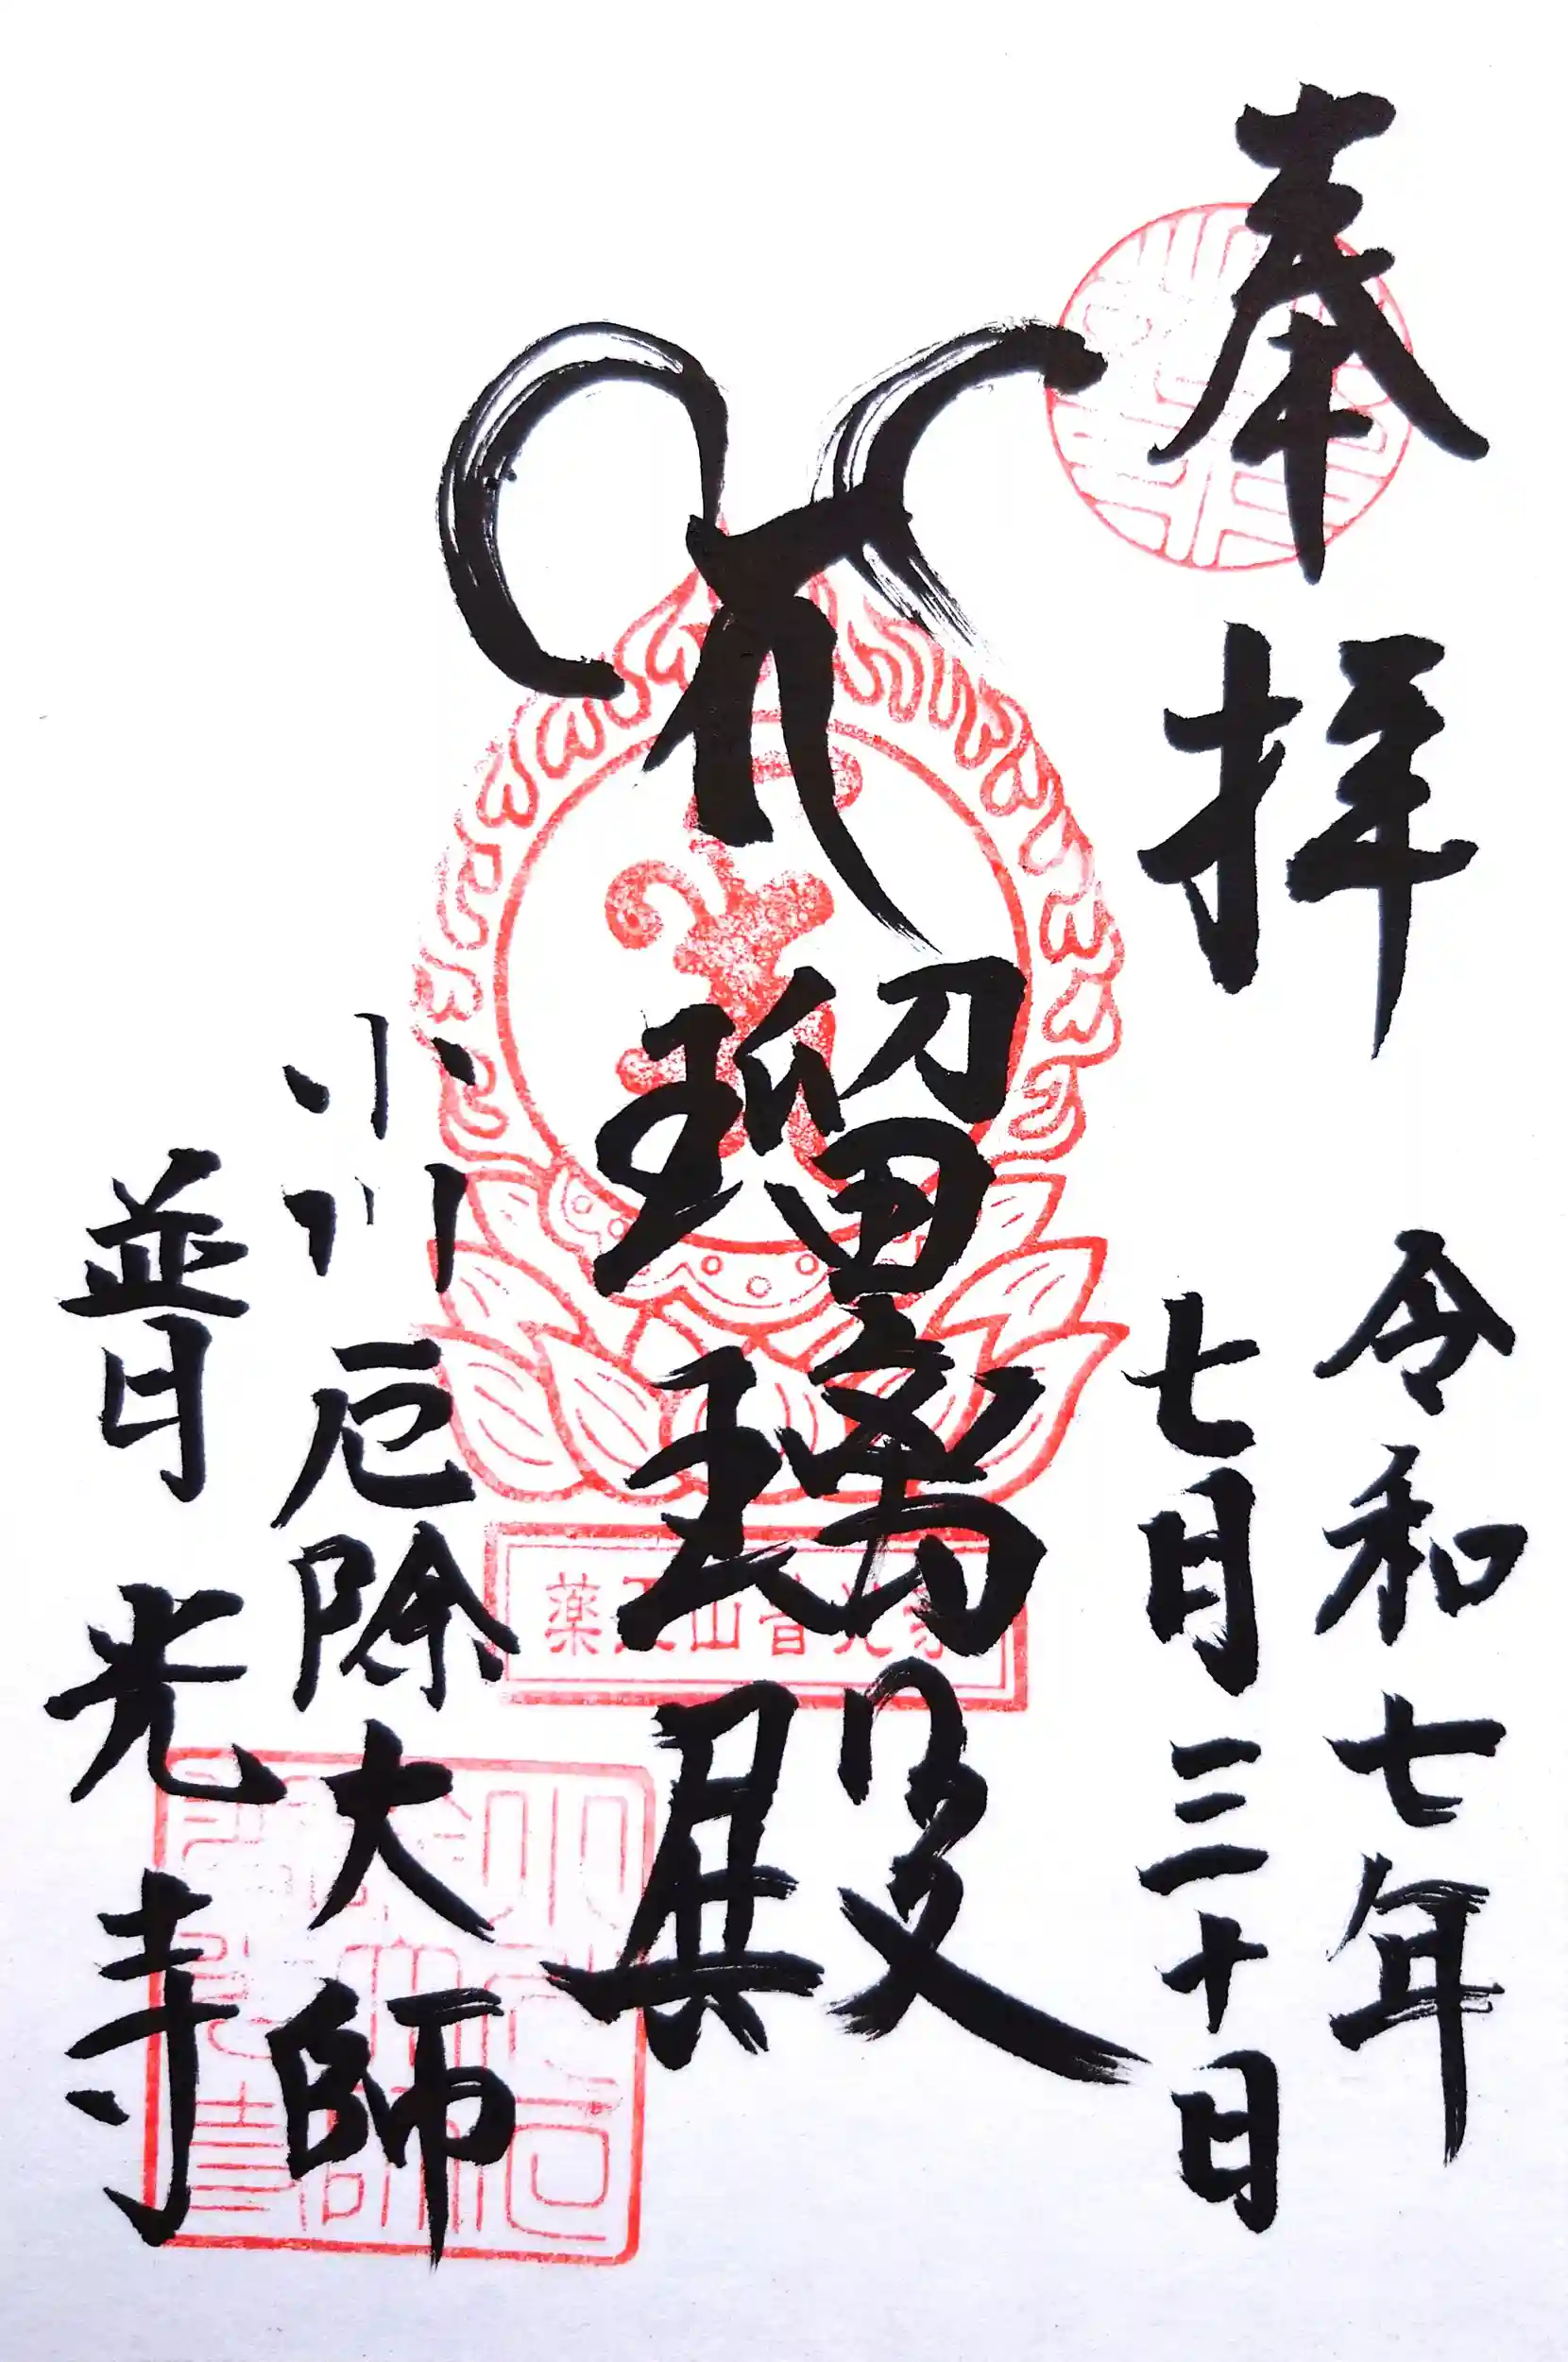 奉拝
令和七年
七月三十日
瑠璃殿
薬王山普光寺
小川厄除大師
普光寺